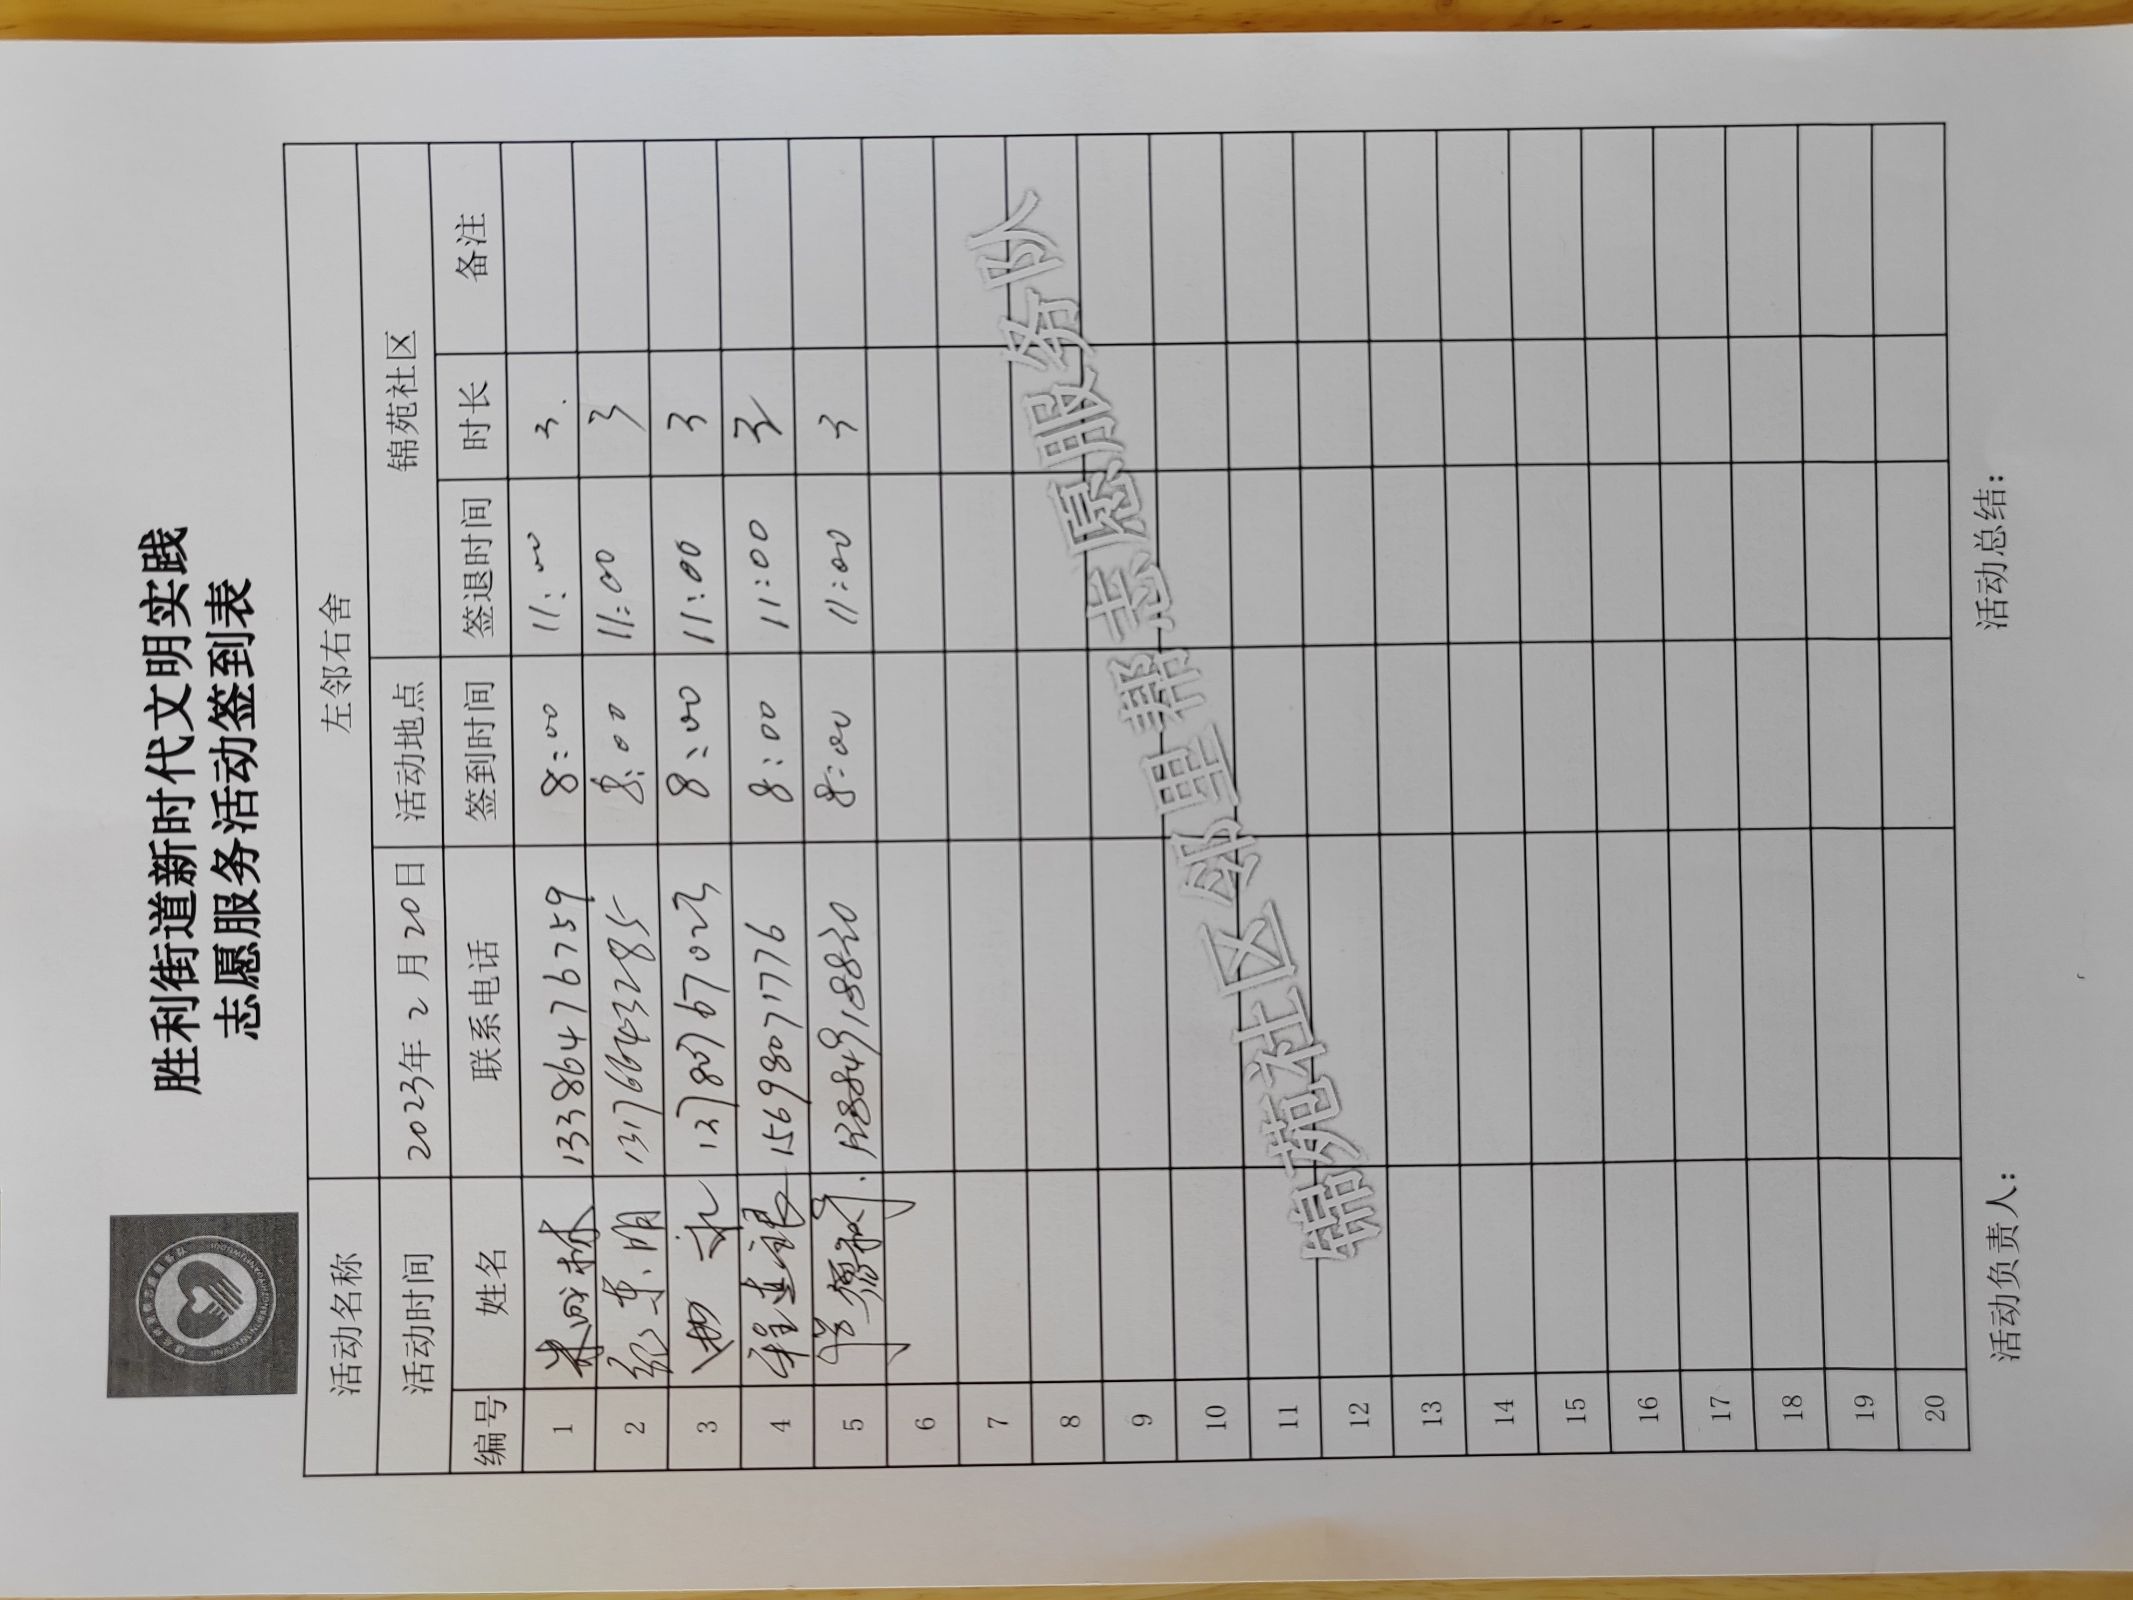 胜利街道新时代文明实践
志愿服务活动签到表
活动名称 左邻右舍
活动时间 2023年 2 月 20日 活动地点 锦苑社区
编号 姓名 联系电话 签到时间 签退时间 时长 备注
1 13386476759 8:00 11:00 3.
2 13176643285 8:00 11:00 3
3 8:00 11:00 3
4 15698071776 8:00 11:00 3
5 8:00 11:00 3
6
7
8
9
10
11
12
13
14
15
16
17
18
19
20
锦苑社区邻里帮志愿服务队
活动负责人： 活动总结：